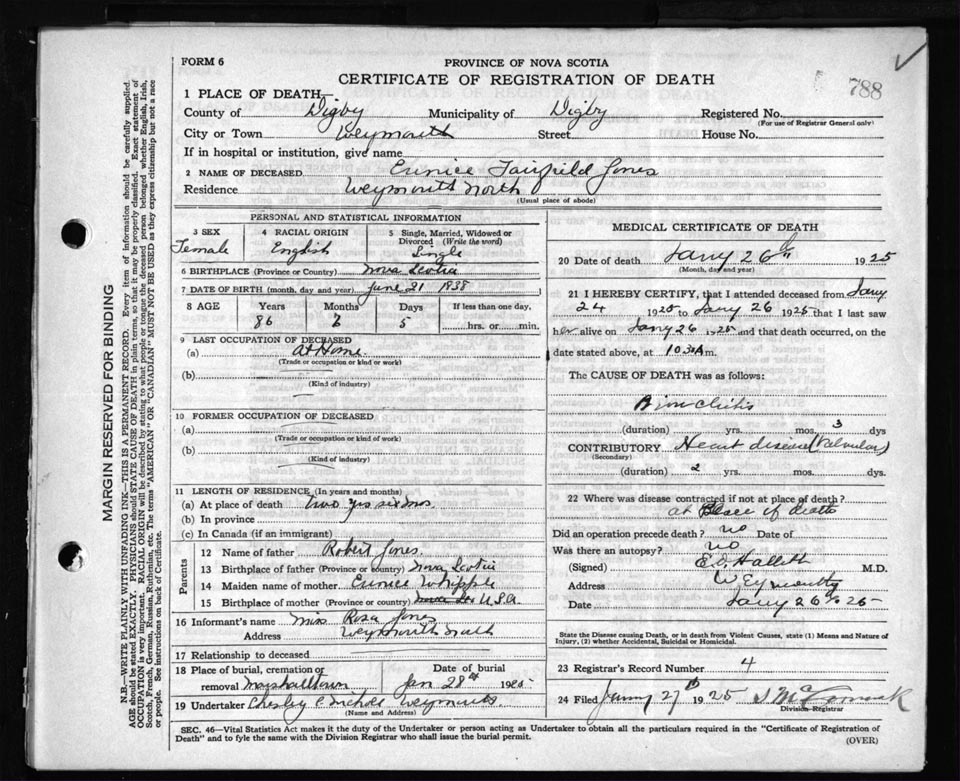 FORM 6
PROVINCE OF NOVA SCOTIA
CERTIFICATE OF REGISTRATION OF DEATH
788
1 PLACE OF DEATH—
County of Digby Municipality of Digby Registered No.
(For use of Registrar General only)
City or Town Weymouth Street House No.
If in hospital or institution, give name
2 NAME OF DECEASED Eunice Fairfield Jones
Residence Weymouth North
(Usual place of abode)
PERSONAL AND STATISTICAL INFORMATION
3 SEX 4 RACIAL ORIGIN 5 Single, Married, Widowed or Divorced (Write the word)
Female English Single
6 BIRTHPLACE (Province or Country) Nova Scotia
7 DATE OF BIRTH (month, day and year) June 21 1838
8 AGE Years Months Days If less than one day,
86 5 hrs. or min.
9 LAST OCCUPATION OF DECEASED
(a) At Home
(Trade or occupation or kind or work)
(b)
(Kind of industry)
10 FORMER OCCUPATION OF DECEASED
(a)
(Trade or occupation or kind of work)
(b)
(Kind of industry)
11 LENGTH OF RESIDENCE (In years and months)
(a) At place of death Two yrs six mos
(b) In province
(c) In Canada (if an immigrant)
Parents
12 Name of father Robert Jones
13 Birthplace of father (Province or country) Nova Scotia
14 Maiden name of mother Eunice Whipple
15 Birthplace of mother (Province or country) U.S.A.
16 Informant's name Miss Rosa Jones
Address Weymouth North
17 Relationship to deceased
18 Place of burial, cremation or Date of burial
removal Marshalltown Jan 28th 1925
19 Undertaker Chesley Weymouth
(Name and Address)
MEDICAL CERTIFICATE OF DEATH
20 Date of death Jany 26th 1925
(Month, day and year)
21 I HEREBY CERTIFY, that I attended deceased from Jany
24 1925 to Jany 26 1925 that I last saw
her alive on Jany 26 1925 and that death occurred, on the
date stated above, at 10 30 A m.
The CAUSE OF DEATH was as follows:
Bronchitis
(duration) yrs. mos. 3 dys
CONTRIBUTORY Heart disease (Valvular)
(Secondary)
(duration) 2 yrs. mos. dys.
22 Where was disease contracted if not at place of death?
at Place of death
Did an operation precede death? no Date of
Was there an autopsy? no
(Signed) M.D.
Address Weymouth
Date Jany 26th 25
State the Disease causing Death, or in death from Violent Causes, state (1) Means and Nature of
Injury, (2) whether Accidental, Suicidal or Homicidal.
23 Registrar's Record Number 4
24 Filed Jany 27th 1925
Division-Registrar
SEC. 46—Vital Statistics Act makes it the duty of the Undertaker or person acting as Undertaker to obtain all the particulars required in the "Certificate of Registration of
Death" and to fyle the same with the Division Registrar who shall issue the burial permit.
(OVER)
MARGIN RESERVED FOR BINDING
N.B.—WRITE PLAINLY WITH UNFADING INK—THIS IS A PERMANENT RECORD. Every item of information should be carefully supplied.
AGE should be stated EXACTLY. PHYSICIANS should STATE CAUSE OF DEATH in plain terms, so that it may be properly classified. Exact statement of
OCCUPATION is very important. RACIAL ORIGIN will be described by stating to what people or tongue the deceased person belonged whether English, Irish,
Scotch, French, German, Russian, Ruthenian, etc. The terms "AMERICAN" OR "CANADIAN" MUST NOT BE USED as they express citizenship but not a race
or people. See instructions on back of Certificate.